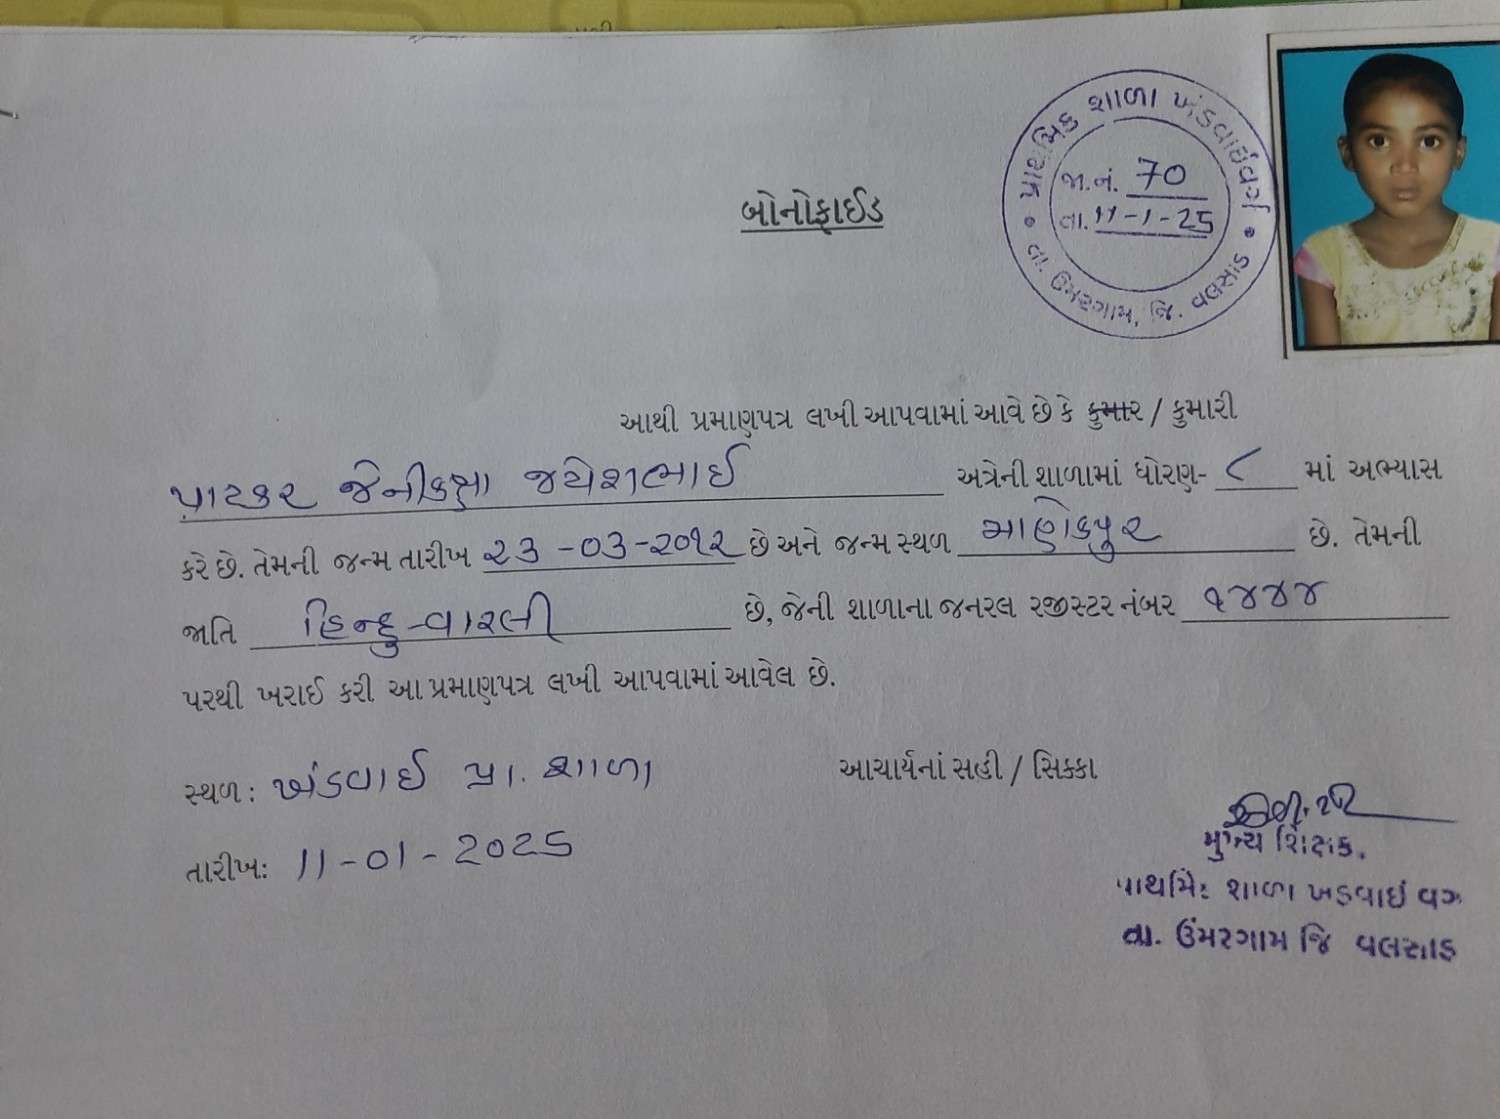 બોનોફાઈડ
પ્રાથમિક શાળા ખંડવાઈવર્ગ
જા.નં. 70
તા. 11-1-25
તા. ઉમરગામ, જિ. વલસાડ
આથી પ્રમાણપત્ર લખી આપવામાં આવે છે કે કુમાર / કુમારી
પાટકર જેનીક્ષા જયેશભાઈ અત્રેની શાળામાં ધોરણ- ૮ માં અભ્યાસ
કરે છે. તેમની જન્મ તારીખ ૨૩-૦૩-૨૦૧૨ છે અને જન્મ સ્થળ માણેકપુર છે. તેમની
જાતિ હિન્દુ-વારલી છે, જેની શાળાના જનરલ રજીસ્ટર નંબર ૧૪૪૪
પરથી ખરાઈ કરી આ પ્રમાણપત્ર લખી આપવામાં આવેલ છે.
સ્થળ: ખંડવાઈ પ્રા. શાળા આચાર્યનાં સહી / સિક્કા
તારીખ: 11-01-2025
મુખ્ય શિક્ષક.
શાળા ખડવાઈ વગ
તા. ઉંમરગામ જિ વલસાડ